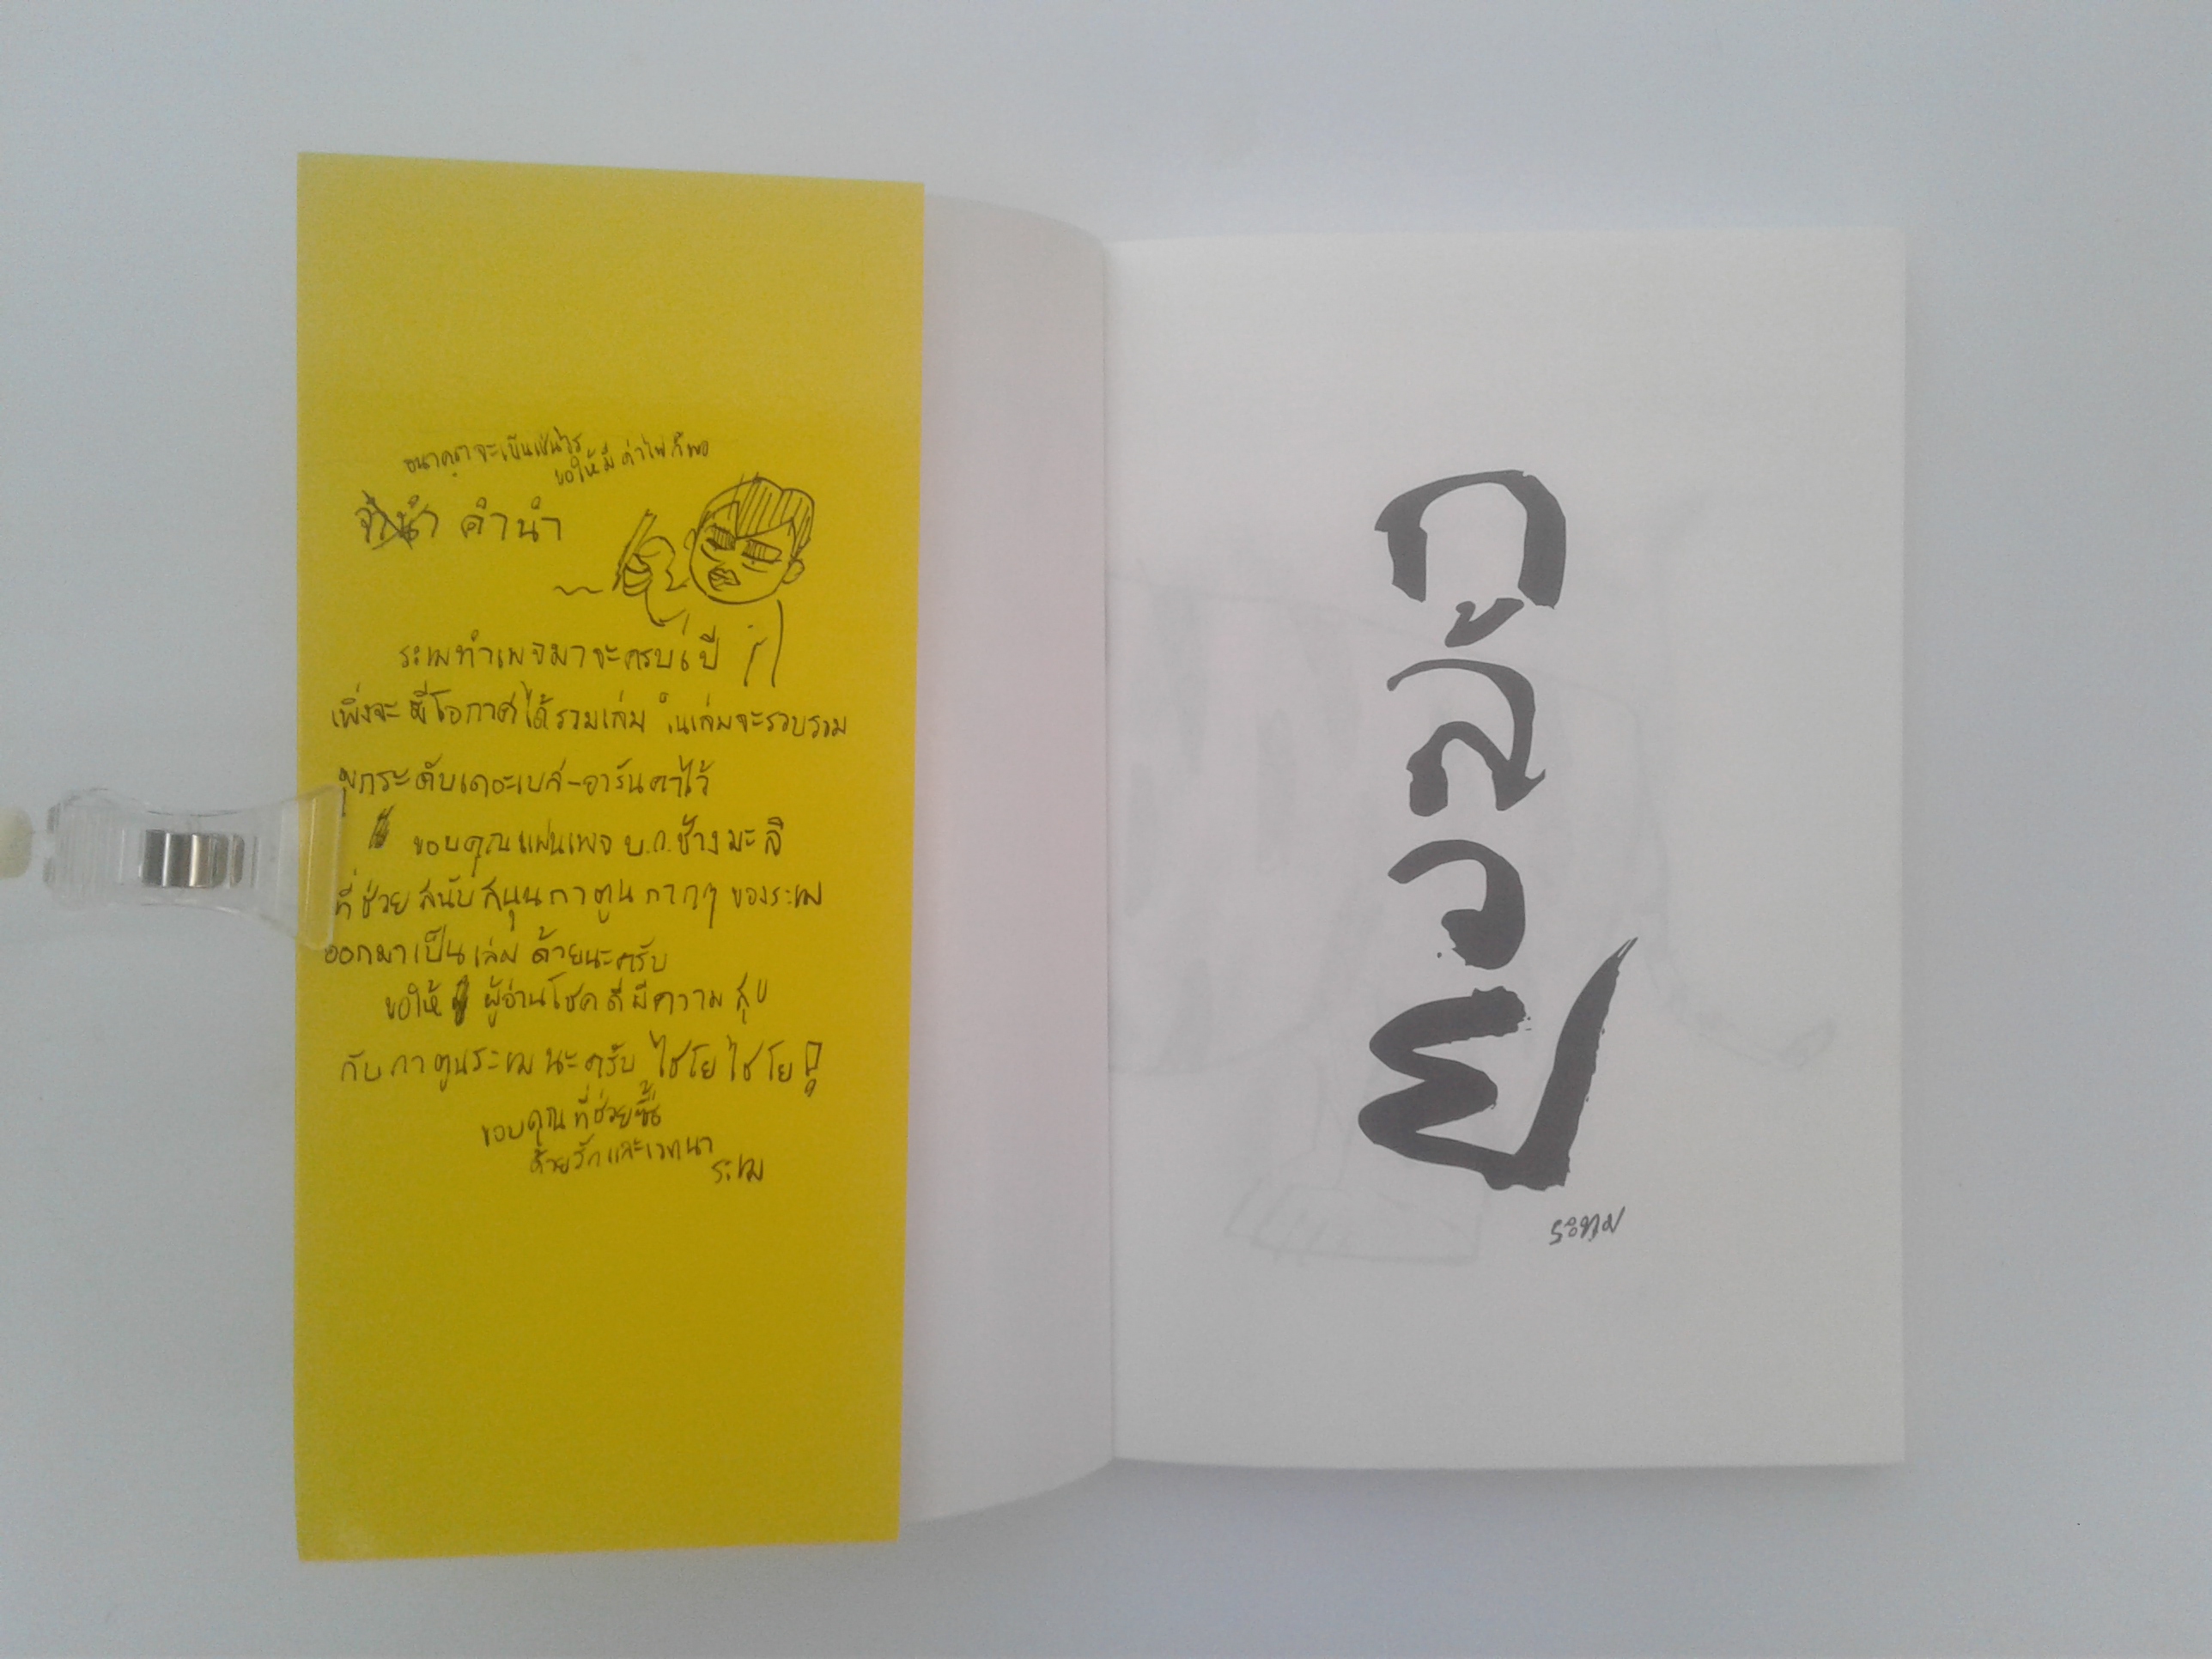 อนาคตจะเป็นเช่นไร
ขอให้มีค่าไฟก็พอ
คำนำ
ระเฑทำเพจมาจะครบ ปี
เพิ่งจะมีโอกาศได้รวมเล่ม ในเล่มจะรวบรวม
มุกระดับเดอะเบส์-อารันดาไว้
ขอบคุณแฟนเพจ บ.ก.ช้างมะลิ
ที่ช่วยสนับสนุนกาตูนกากๆ ของระเฑ
ออกมาเป็นเล่มด้วยนะครับ
ขอให้ ผู้อ่านโชคดีมีความสุข
กับกาตูนระเฑนะครับ ไชโยไชโย
ขอบคุณที่ช่วยซื้อ
ด้วยรักและเวทนา
ระเฑ
กล้วย
ระฑม